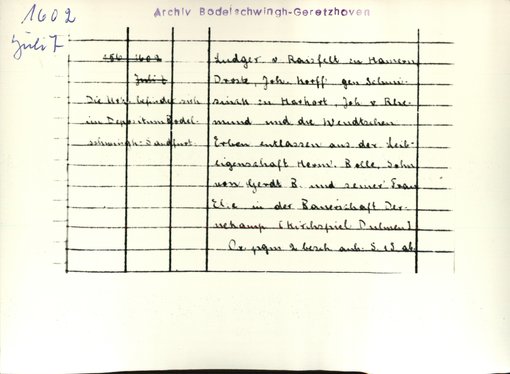 1602
Juli 7
Archiv Bodelschwingh-Geretzhoven
186 1602
Juli 7
Die Urk. befindet sich
im Depositum Bodel-
schwingh-Sandfurt.
Ludger v Raesfelt zu Hamern
Droste, Joh. Korff gen Schmi-
sinck zu Harkort, Joh v Rhe-
mund und die Wendtschen
Erben entlassen aus der Leib-
eigenschaft Herm. Bolle, Sohn
von Gerdt B. und seiner Frau
Else in der Bauerschaft Der-
nekamp (Kirchspiel Dulmen)
Or prgm 2 besch anh. S. ab